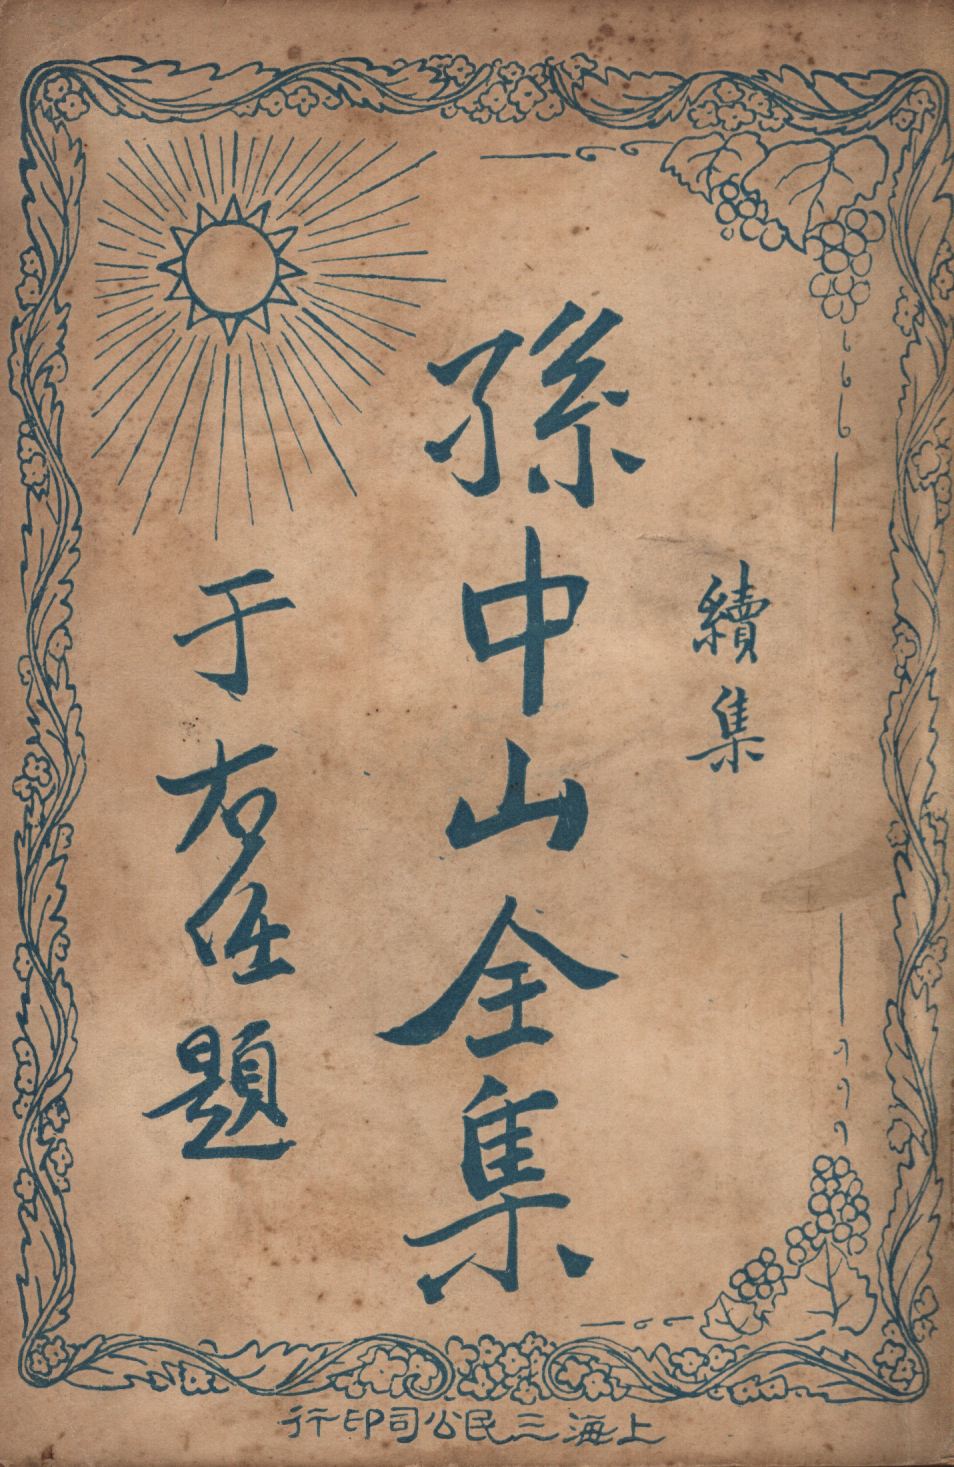 續集
孫中山全集
于右任題
上海三民公司印行